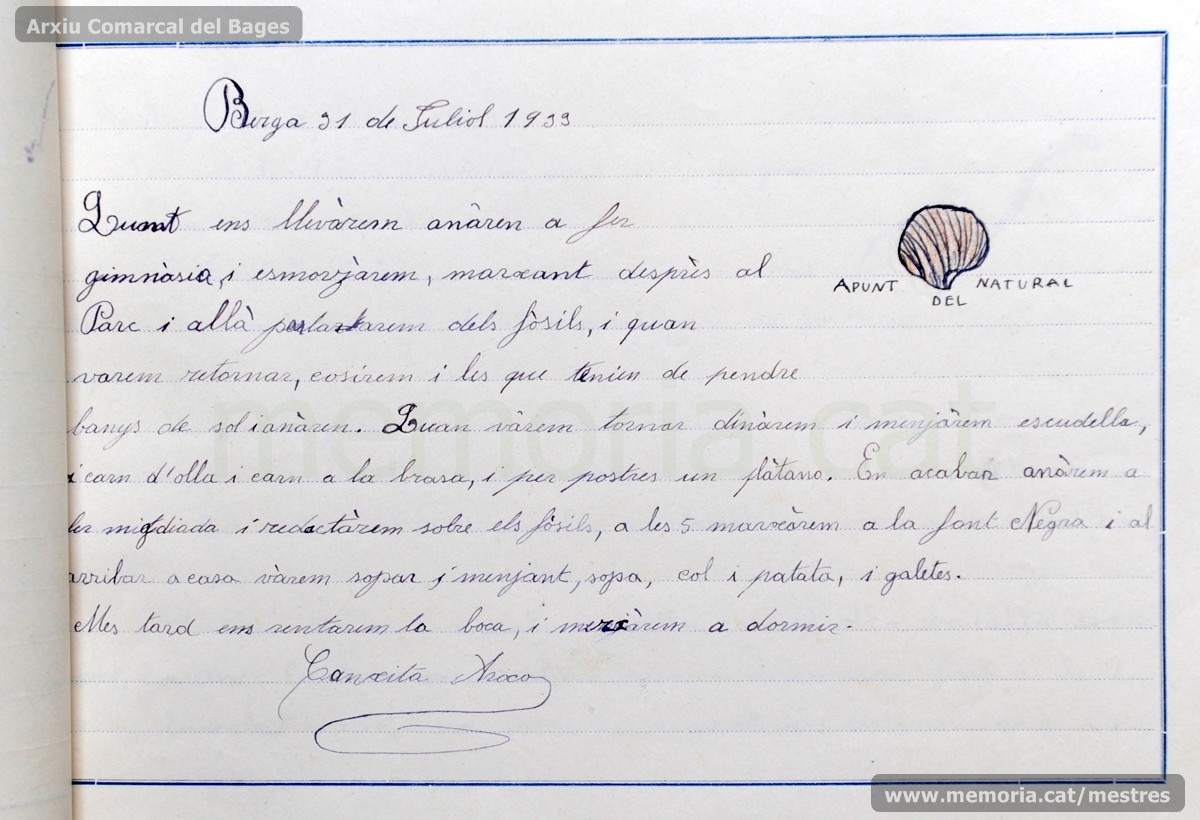 Arxiu Comarcal del Bages
Berga 31 de Juliol 1933
Quant ens llevàrem anàren a fer
gimnàsia, i esmorzàrem, marxant desprès al
Parc i allà parlarem dels fòsils, i quan
varem retornar, cosirem i les que tenien de pendre
banys de sol i anàren. Quan vàrem tornar dinàrem i menjàrem escudella,
i carn d'olla i carn a la brasa, i per postres un plàtano. En acabar anàrem a
fer migdiada i redactàrem sobre els fòsils, a les 5 marxàrem a la font Negra i al
arribar a casa vàrem sopar i menjant, sopa, col i patata, i galetes.
Mes tard ens rentarem la boca, i marxàrem a dormir.
APUNT DEL NATURAL
memoria.cat
www.memoria.cat/mestres